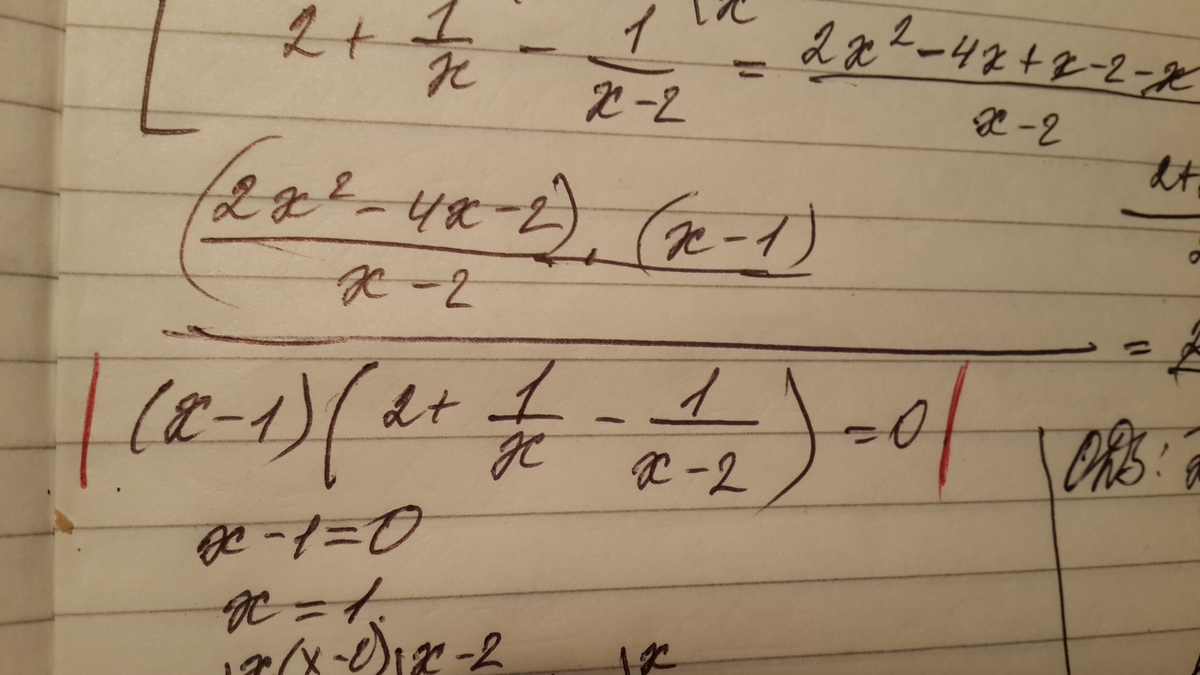 2 + 1/x - 1/(x-2) = (2x² - 4x + x - 2 - x)/(x-2)
((2x² - 4x - 2)/(x-2)) · (x-1)
(x-1)(2 + 1/x - 1/(x-2)) = 0
x - 1 = 0
x = 1.
x(x-2) \x-2 \x